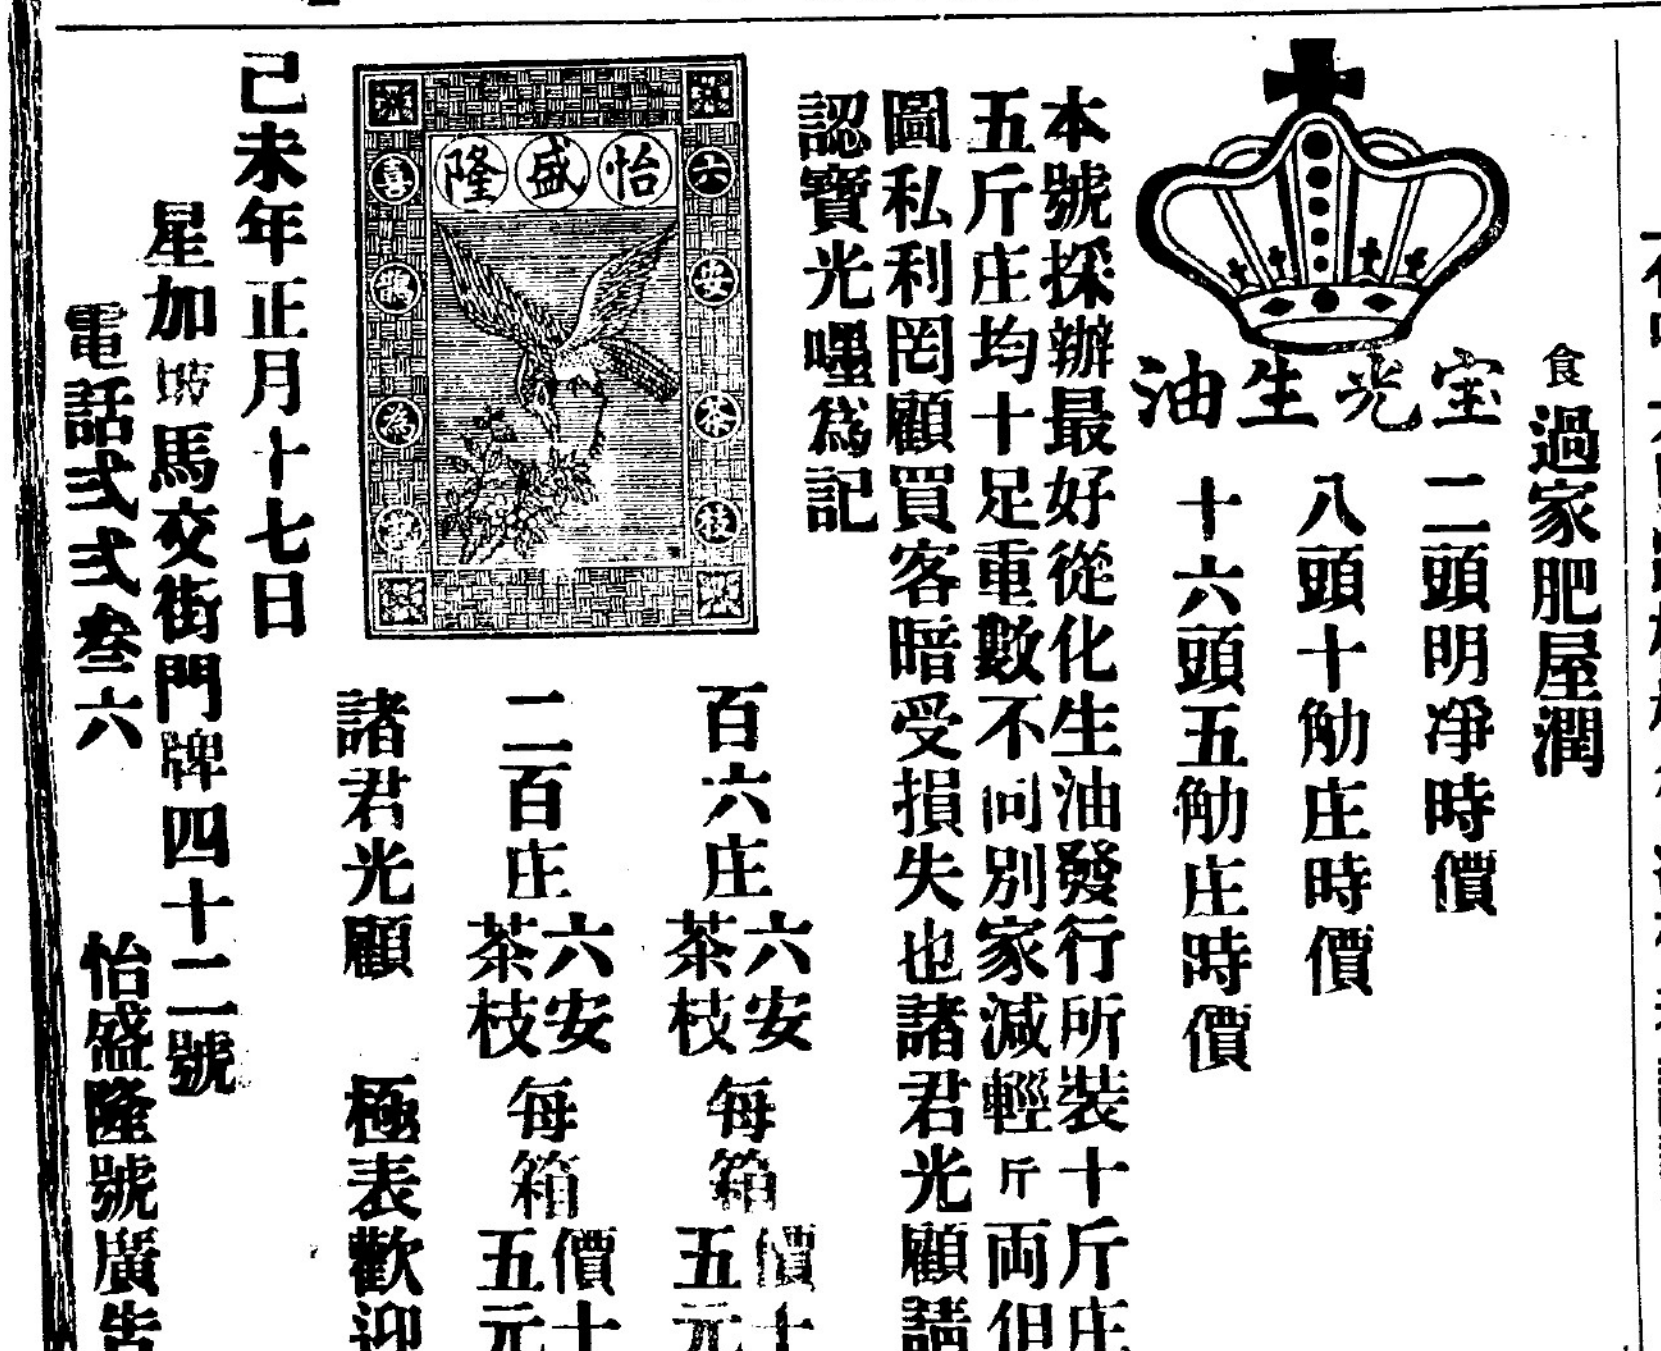 食過家肥屋潤
二頭明凈時價
八頭十觔庄時價
十六頭五觔庄時價
宝光生油
本號採辦最好從化生油發行所裝十斤庄
五斤庄均十足重數不问別家減輕斤両但
圖私利罔顧買客暗受損失也諸君光顧請
認寶光嘜為記
怡盛隆
六安茶枝
喜鵲為
百六庄六安茶枝每箱價十五元
二百庄六安茶枝每箱價十五元
諸君光顧 極表歡迎
己未年正月十七日
星加坡馬交街門牌四十二號
電話弍弍叁六 怡盛隆號廣告